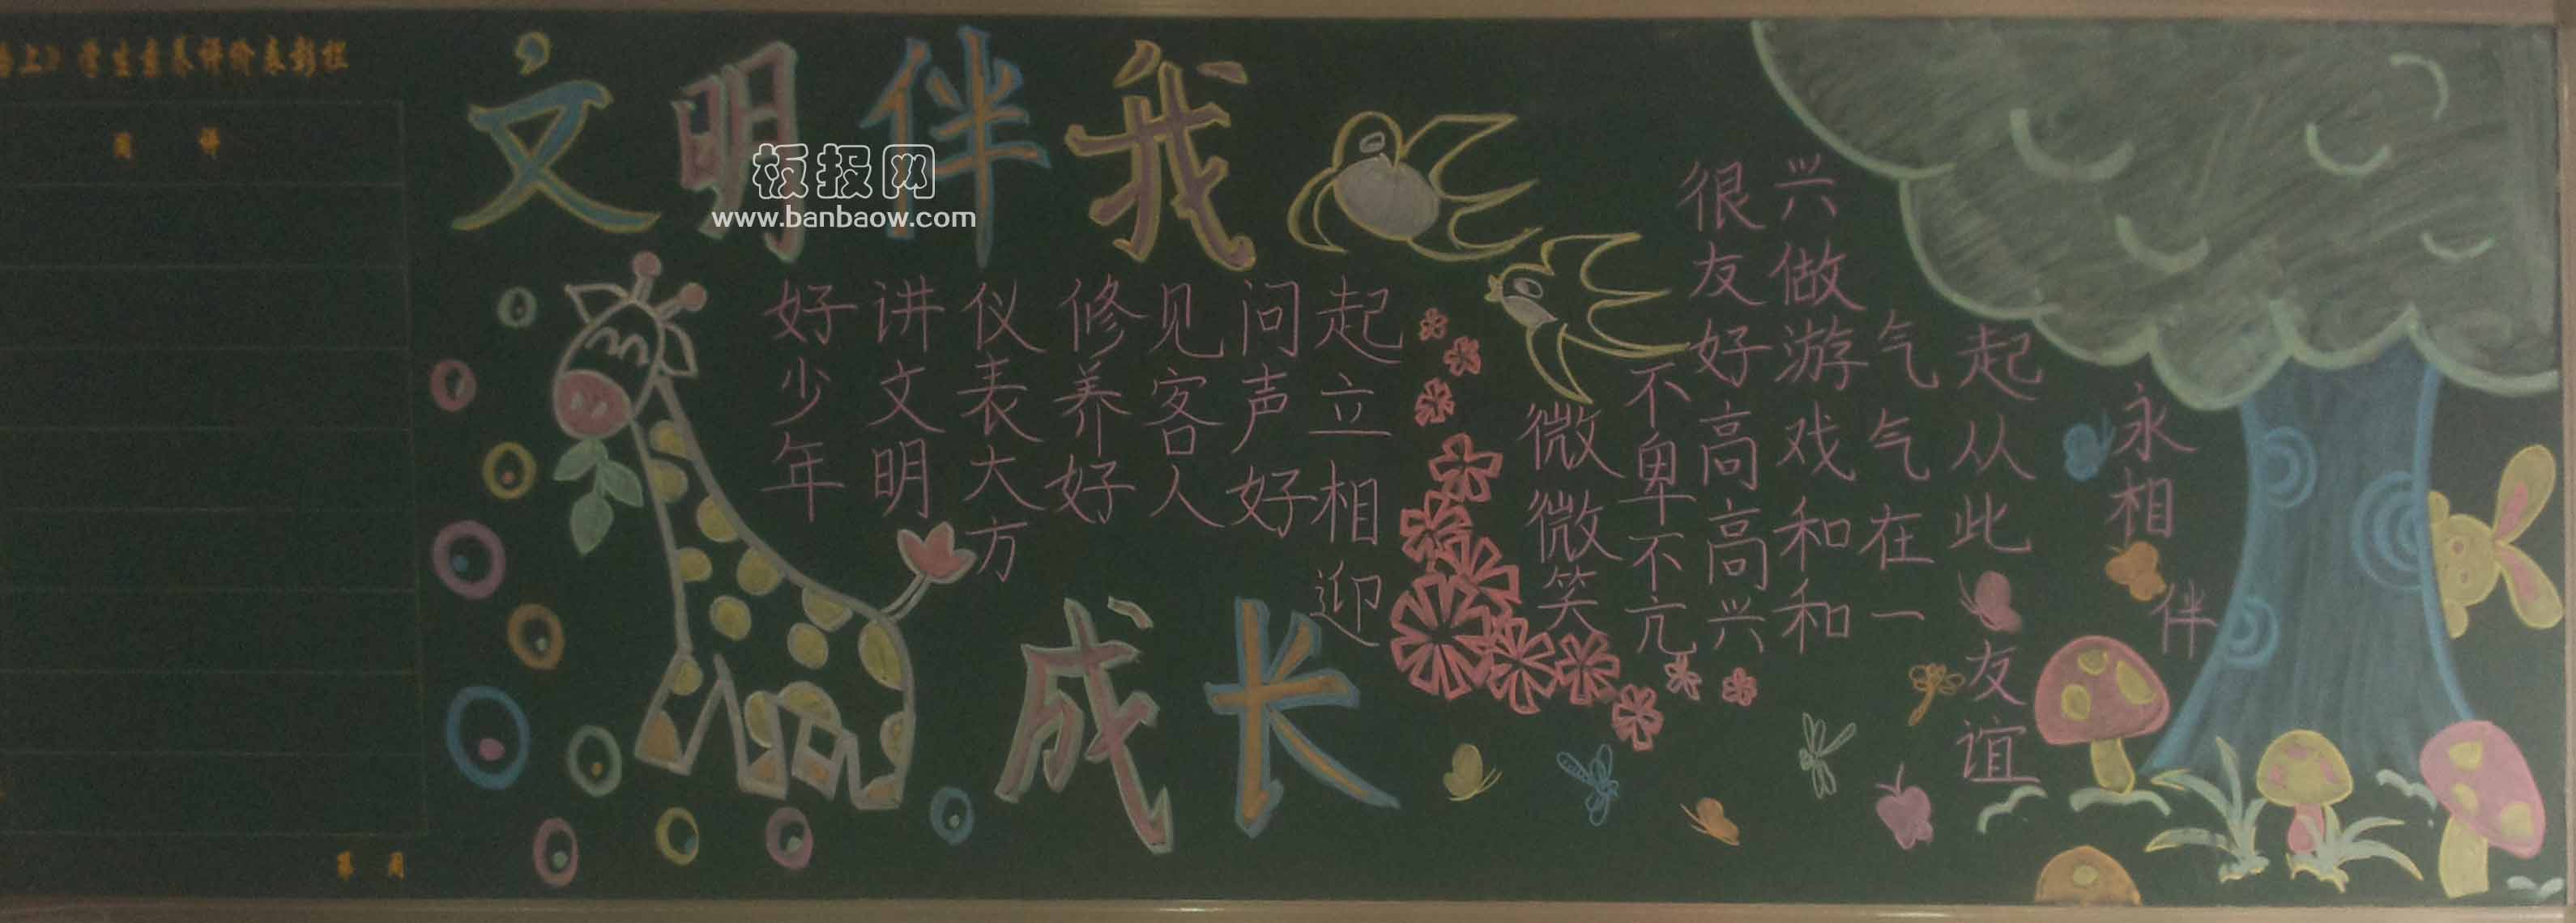 上》学生素养评价表彰栏
周 评
第 周
文明伴我
成长
板报网
www.banbaow.com
好少年
讲文明
仪表大方
修养好
见客人
问声好
起立相迎
微微笑
不卑不亢
很友好高高兴
兴做游戏和和
气气在一
起从此友谊
永相伴